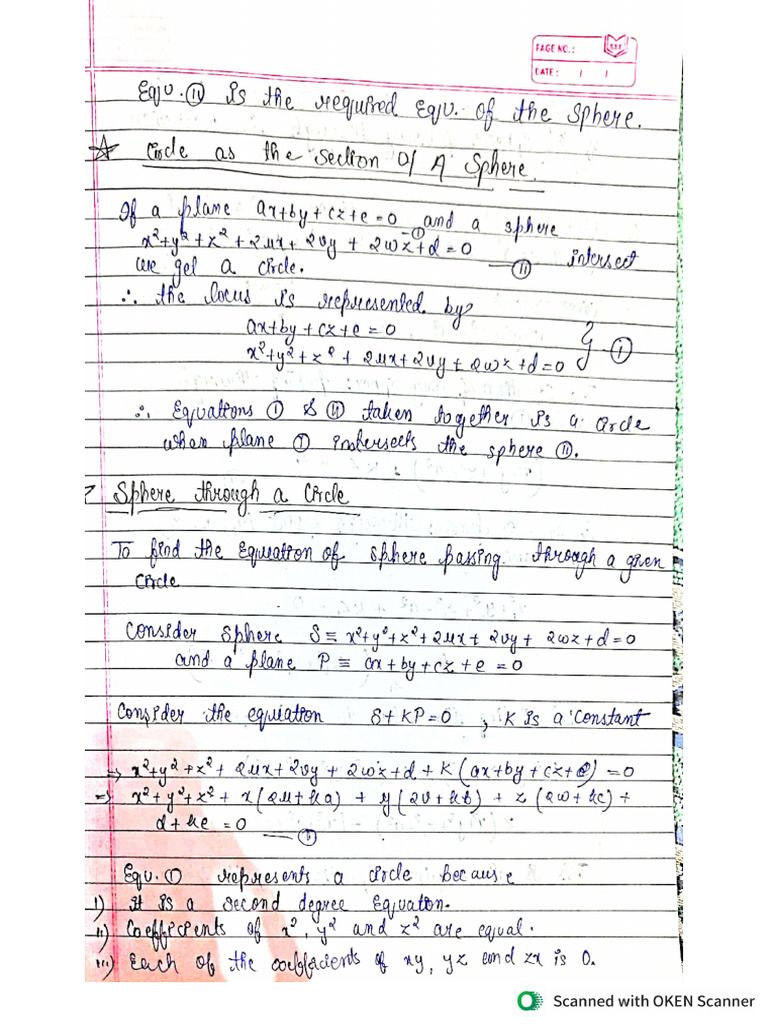 PAGE NO.:
DATE: / /
Equ. (II) is the required Equ. of the Sphere.
☆ Circle as the Section Of A Sphere.
If a plane ax+by+cz+e=0 —(I) and a sphere
x²+y²+z²+2ux+2vy+2wz+d=0 —(II) intersect
we get a circle.
∴ the locus is represented by
ax+by+cz+e=0
x²+y²+z²+2ux+2vy+2wz+d=0 } (I)
∴ Equations (I) & (II) taken together is a circle
when plane (I) intersects the sphere (II).
Sphere through a Circle
To find the Equation of sphere passing through a given
Circle
Consider Sphere S ≡ x²+y²+z²+2ux+2vy+2wz+d=0
and a plane P ≡ ax+by+cz+e=0
Consider the equation S+KP=0, K is a constant
=> x²+y²+z²+2ux+2vy+2wz+d+K(ax+by+cz+e)=0
=> x²+y²+z²+x(2u+ka)+y(2v+kb)+z(2w+kc)+
d+ke=0 —(I)
Equ. (I) represents a circle because
i) It is a second degree Equation.
ii) Coefficients of x², y² and z² are equal.
iii) Each of the coefficients of xy, yz and zx is 0.
Scanned with OKEN Scanner